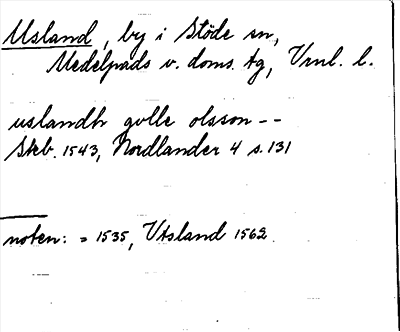 Usland, by i Stöde sn,
Medelpads v. doms. tg, Vrnl. l.
uslandh gvlle olsson --
Skb. 1543, Nordlander 4 s. 131
noten: = 1535, Utsland 1562.